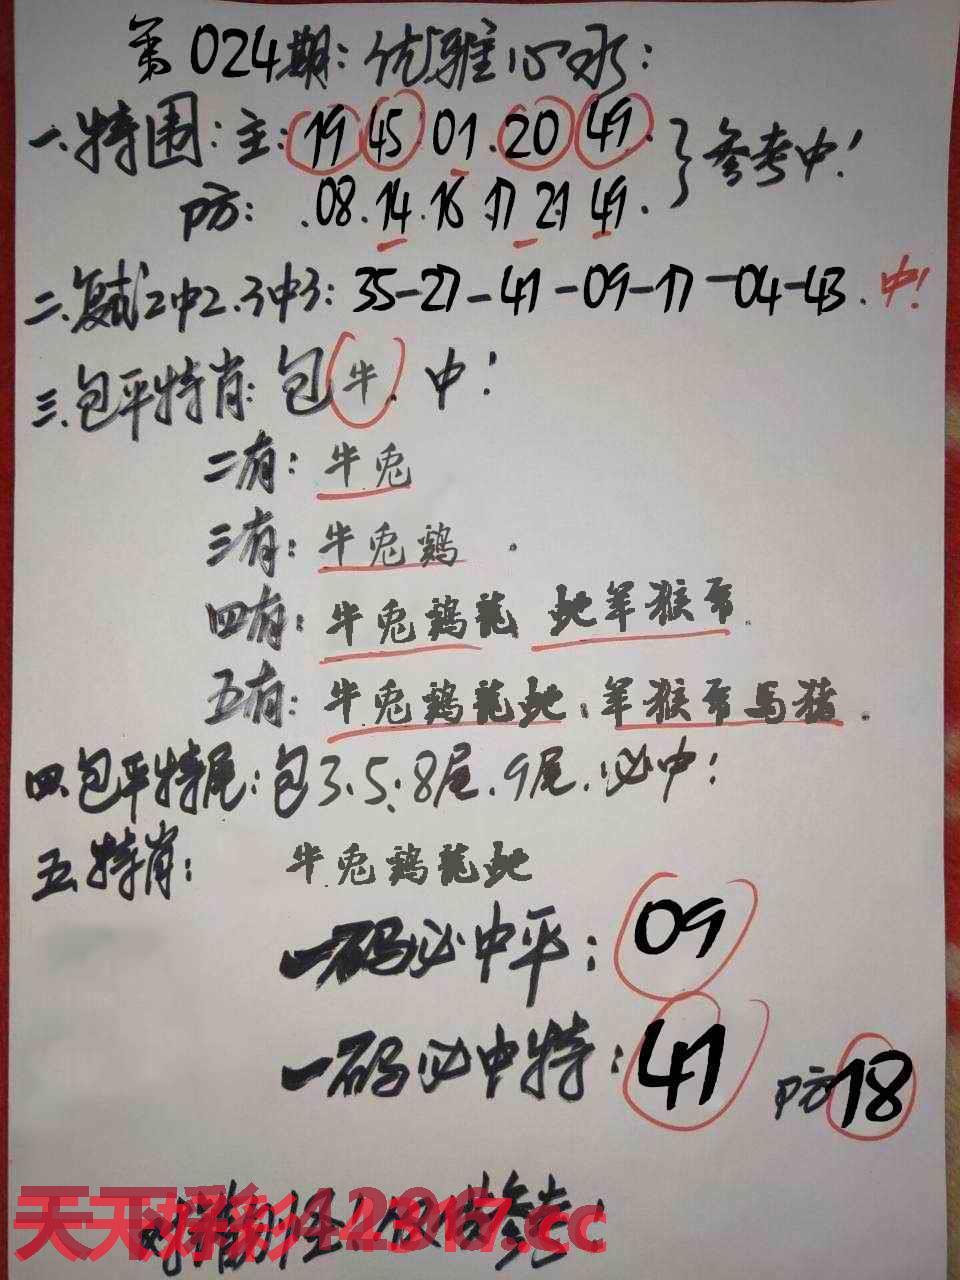 第024期:优雅心水:
一.特围:主:19 45.01.20 49.
防:.08.14.16.17 21 49.}参考中!
二.复式2中2.3中3:35-27-41-09-17-04-43.中!
三.包平特肖:包牛.中!
二有:牛兔
三有:牛兔鸡.
四有:牛兔鸡龍 蛇羊猴
五有:牛兔鸡龍蛇:羊猴 马猪.
四.包平特尾:包3.5:8尾.9尾.必中!
五.特肖:牛兔鸡龍蛇
一码必中平:09
一码必中特:41 防18
天下彩 .cc